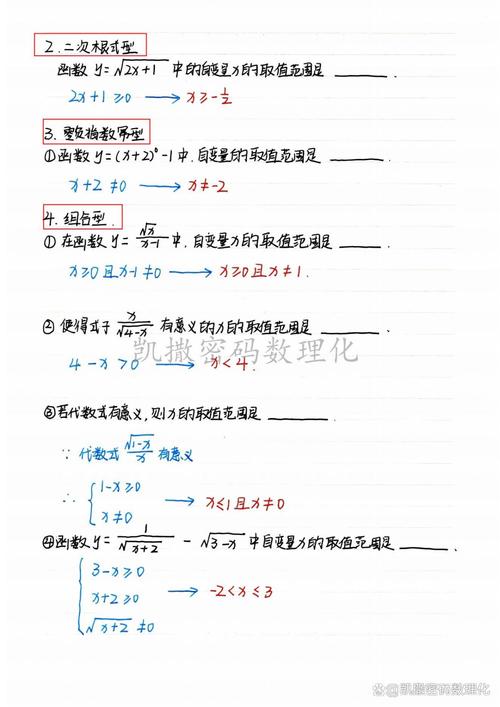 2.二次根式型
函数 y=√(2x+1) 中的自变量x的取值范围是 ______.
2x+1≥0 → x≥-1/2
3.零负指数幂型
①函数 y=(x+2)⁰-1中,自变量的取值范围是 ______.
x+2≠0 → x≠-2
4.组合型.
①在函数 y=√x/(x-1) 中,自变量x的取值范围是 ______.
x≥0且x-1≠0 → x≥0且x≠1.
②使得式子 x/√(4-x) 有意义的x的取值范围是 ______.
4-x>0 → x<4.
凯撒密码数理化
③若代数式有意义,则x的取值范围是 ______.
∵代数式 √(1-x)/x 有意义
∴ { 1-x≥0
x≠0 → x≤1且x≠0
④函数 y=1/√(x+2) - √(3-x) 中自变量x的取值范围是 ______.
{ 3-x≥0
x+2≥0 → -2<x≤3
√(x+2)≠0
@凯撒密码数理化